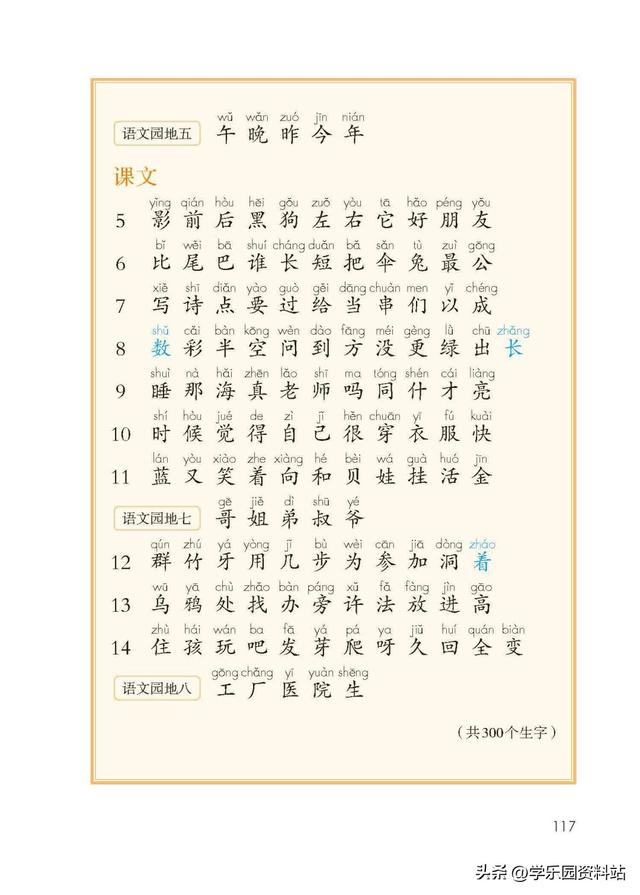 wǔ wǎn zuó jīn nián
语文园地五 午 晚 昨 今 年
课文
yǐng qián hòu hēi gǒu zuǒ yòu tā hǎo péng yǒu
5 影 前 后 黑 狗 左 右 它 好 朋 友
bǐ wěi bā shuí cháng duǎn bǎ sǎn tù zuì gōng
6 比 尾 巴 谁 长 短 把 伞 兔 最 公
xiě shī diǎn yào guò gěi dāng chuàn men yǐ chéng
7 写 诗 点 要 过 给 当 串 们 以 成
shǔ cǎi bàn kōng wèn dào fāng méi gèng lǜ chū zhǎng
8 数 彩 半 空 问 到 方 没 更 绿 出 长
shuì nà hǎi zhēn lǎo shī ma tóng shén cái liàng
9 睡 那 海 真 老 师 吗 同 什 才 亮
shí hòu jué de zì jǐ hěn chuān yī fú kuài
10 时 候 觉 得 自 己 很 穿 衣 服 快
lán yòu xiào zhe xiàng hé bèi wá guà huó jīn
11 蓝 又 笑 着 向 和 贝 娃 挂 活 金
gē jiě dì shū yé
语文园地七 哥 姐 弟 叔 爷
qún zhú yá yòng jǐ bù wèi cān jiā dòng zháo
12 群 竹 牙 用 几 步 为 参 加 洞 着
wū yā chù zhǎo bàn páng xǔ fǎ fàng jìn gāo
13 乌 鸦 处 找 办 旁 许 法 放 进 高
zhù hái wán ba fā yá pá ya jiǔ huí quán biàn
14 住 孩 玩 吧 发 芽 爬 呀 久 回 全 变
gōng chǎng yī yuàn shēng
语文园地八 工 厂 医 院 生
（共300个生字）
117
头条 @学乐园资料站